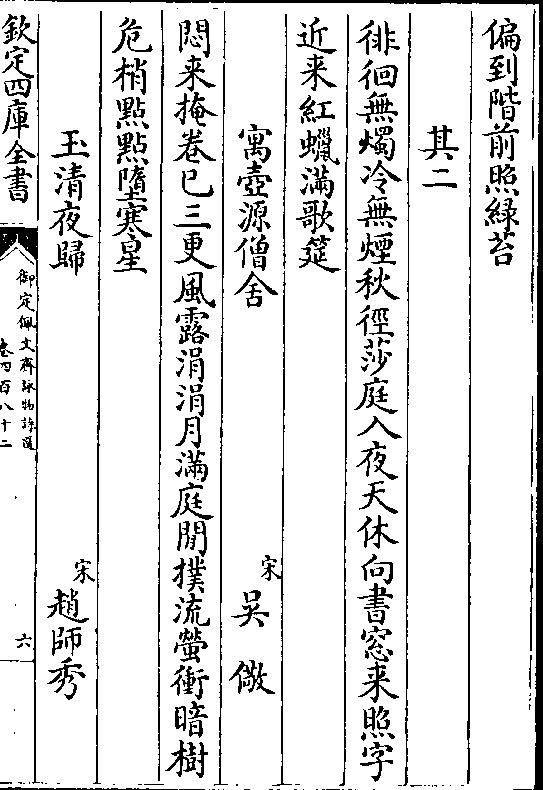 偏到階前照緑苔
其二
徘徊無燭冷無煙秋徑莎庭入夜天休向書窓来照字
近来紅蠟滿歌筵
寓壺源僧舍　宋　吳儆
悶来掩卷已三更風露涓涓月滿庭閒撲流螢衝暗樹
危梢點點墮寒星
玉清夜歸　宋　趙師秀
欽定四庫全書　御定佩文齋詠物詩選　卷四百八十二　六